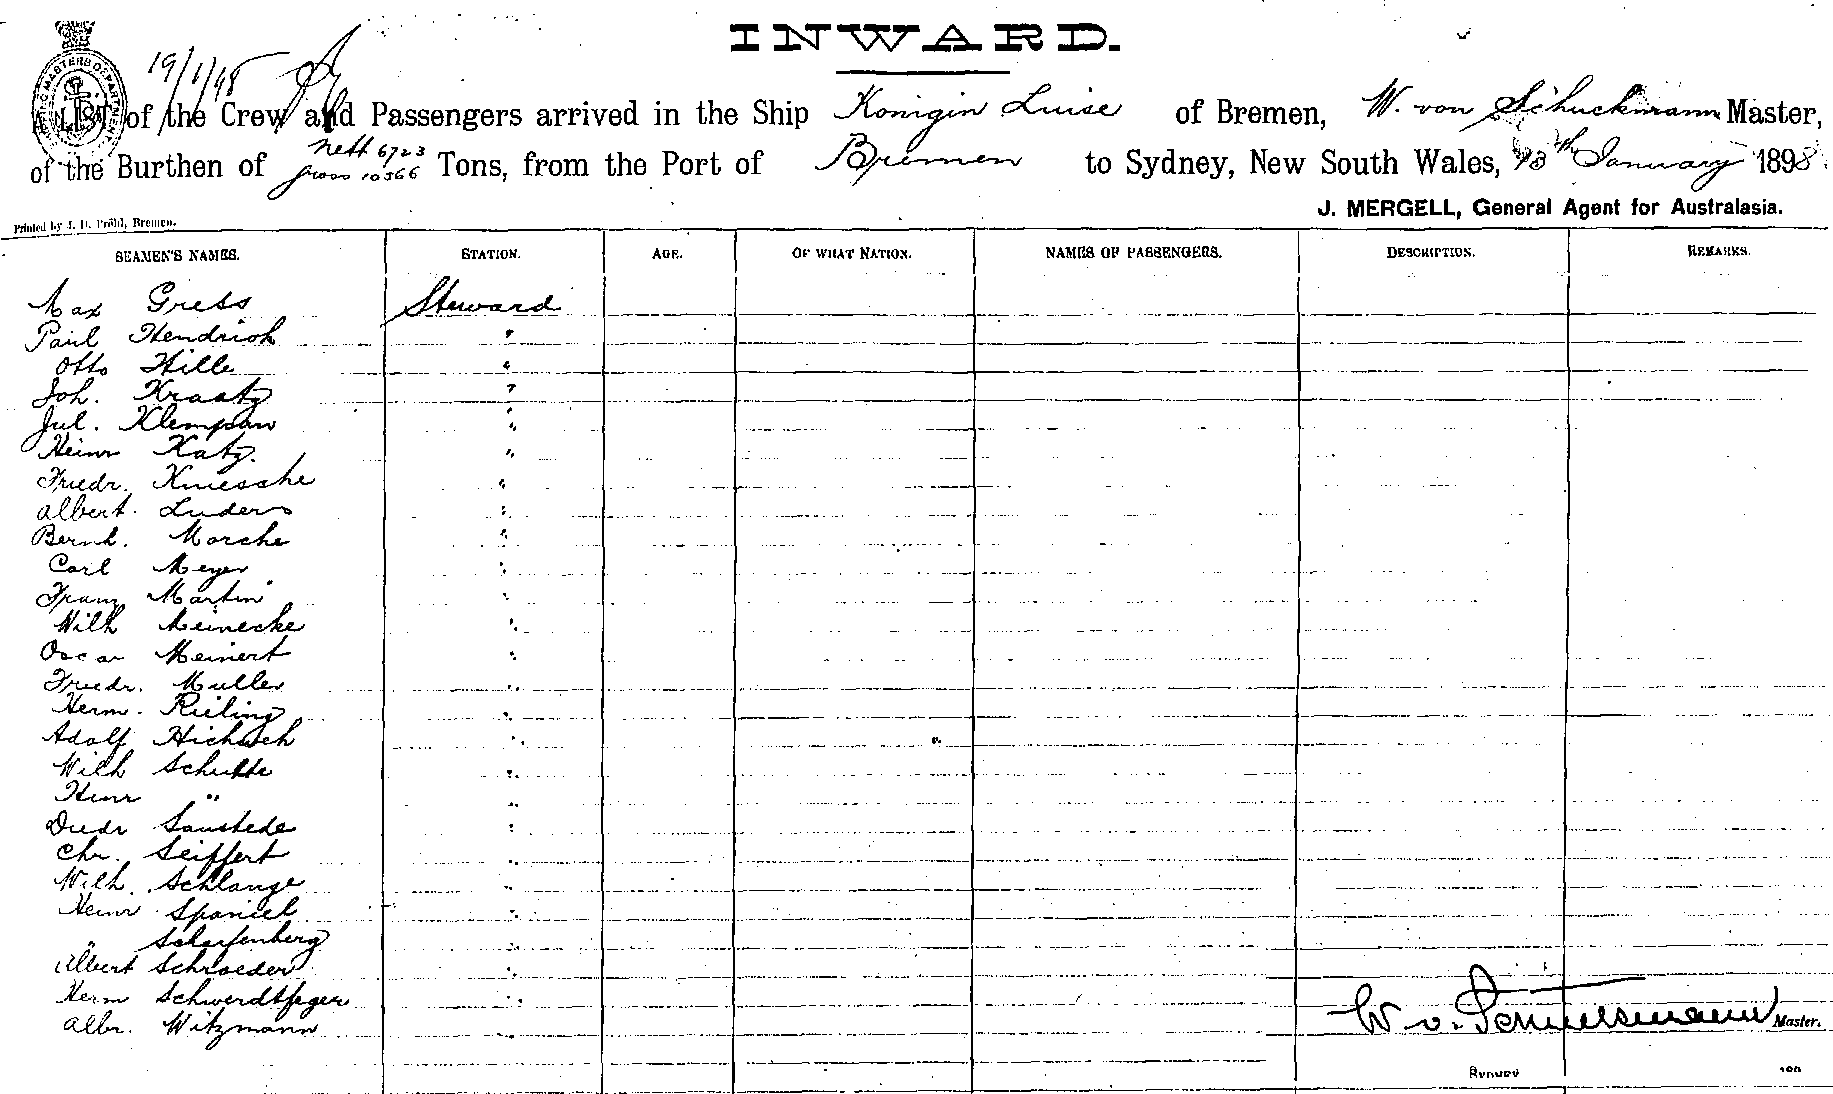 INWARD.
19/1/98
A LIST of the Crew and Passengers arrived in the Ship Konigin Luise of Bremen, W. von Schuckmann Master,
nett 6723
of the Burthen of gross 10566 Tons, from the Port of Bremen to Sydney, New South Wales, 18th January 1898.
J. MERGELL, General Agent for Australasia.
Printed by J. H. Pröhl, Bremen.
SEAMEN'S NAMES. STATION. AGE. OF WHAT NATION. NAMES OF PASSENGERS. DESCRIPTION. REMARKS.
Max Gress Steward
Paul Hendrich "
Otto Hille "
Joh. Kraatz "
Jul. Klempau "
Heinr Katz. "
Friedr. Kniesche "
Albert. Luders "
Bernh. Morche "
Carl Meyer "
Franz Martin "
Wilh Meinecke "
Oscar Meinert "
Friedr. Muller "
Herm. Rieling "
Adolf "
Wilh Schutte "
Heinr " "
Diedr Sanstede "
Chr. Seiffert "
Wilh. Schlange "
Heinr Spaniel "
" Scharfenberg "
Albert Schroeder "
Herm Schwerdtfeger "
Albr. Witzmann "
W v. Schuckmann Master.
SYDNEY 189